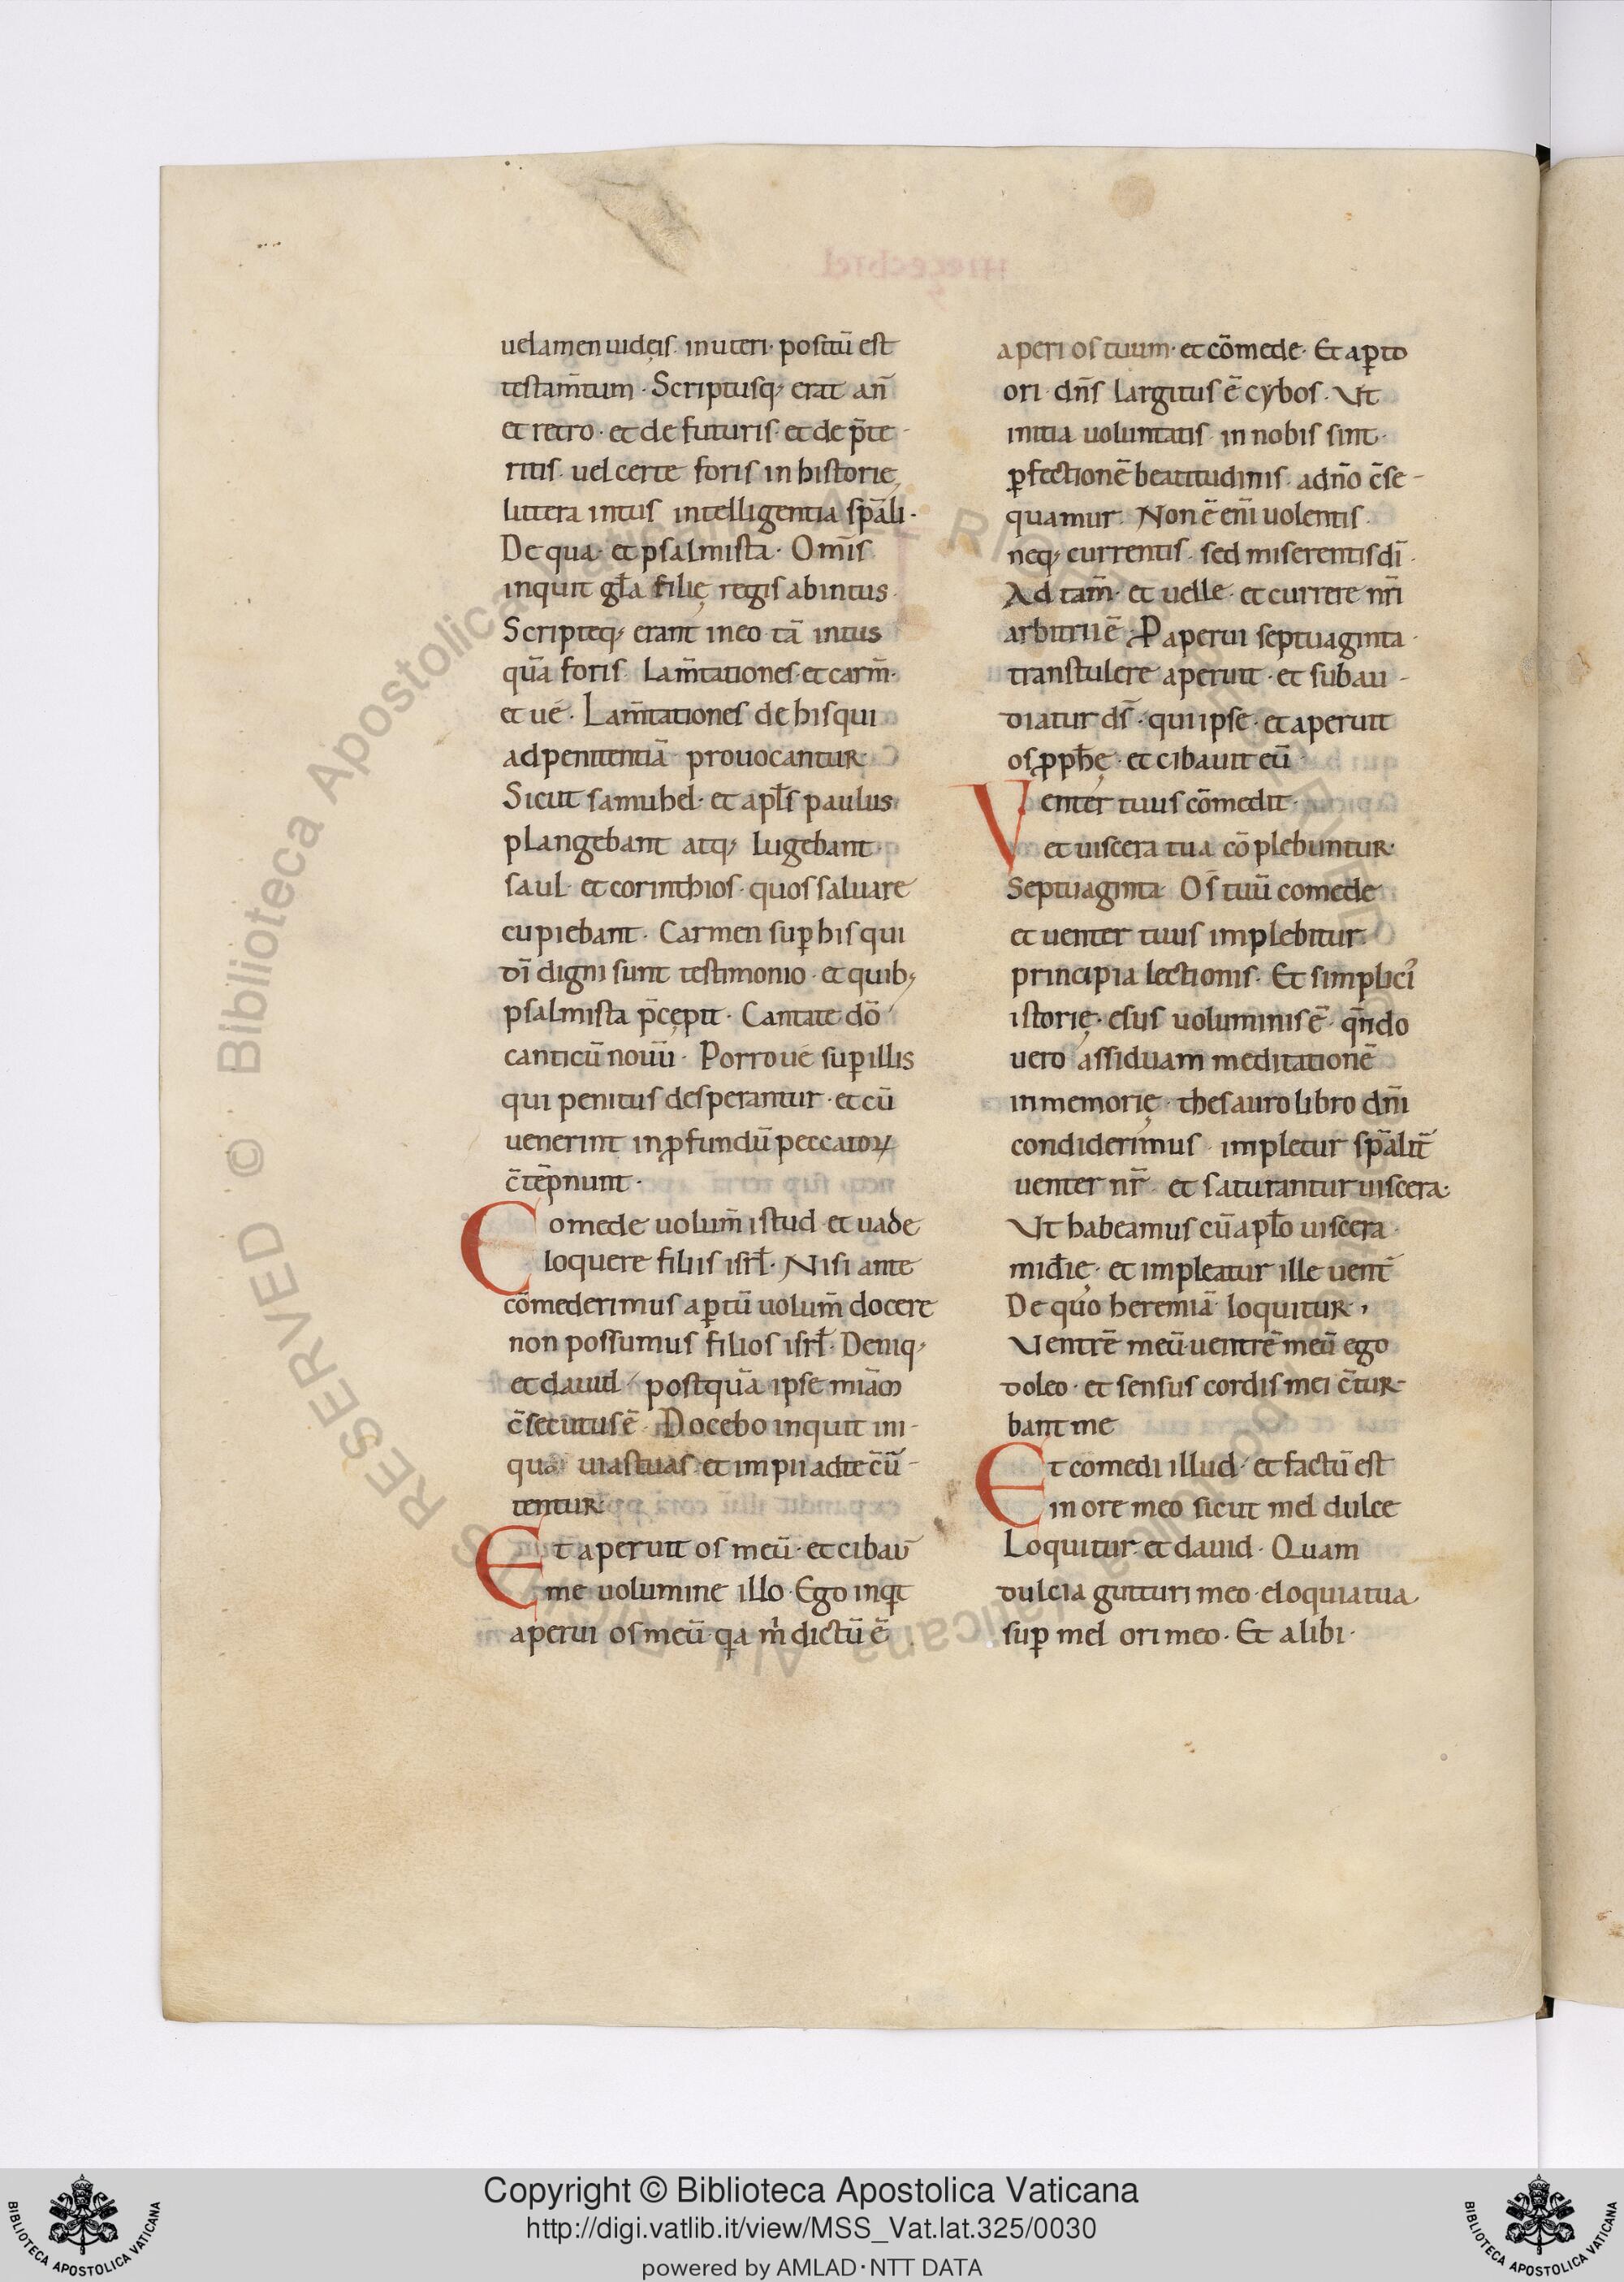 uelamen iudęis. in ueteri. positū est
testam̄tum. Scriptusq; erat an̄
et retro. et de futuris. et de p̄te-
ritis. uel certe foris in historię
littera intus intelligentia sp̄ali.
De qua. et psalmista. Om̄is
inquit gl̄a filię regis abintus.
Scripteq; erant in eo tā intus
quā foris. Lam̄tationes. et carm̄.
et ué. Lam̄tationes de his qui
ad penitentiā prouocantur
Sicut samuhel. et apl̄s paulus
plangebant atq; lugebant
saul. et corinthios. quos saluare
cupiebant. Carmen sup his qui
dī digni sunt testimonio. et quib;
psalmista p̄cępit. Cantate dō
canticū nouū. Porro ué sup illis
qui penitus desperantur. et cū
uenerint in pfundū peccatoꝝ
c̄tēpnunt.
Comede uolum̄ istud et uade
loquere filiis isrl̄. Nisi ante
cōmederimus aptū uolum̄ docere
non possumus filios isrl̄. Deniq;
et dauid postquā ipse miām
c̄secutus ē. Docebo inquit ini-
quos uias tuas et impii ad te c̄ū-
tentur.
Et aperuit os meū. et cibau̅
me uolumine illo. Ego inqt
aperui os meū. qa m̄ dictū ē
aperi os tuum. et cōmede. Et apto
ori. dn̄s largitus ē cybos. Ut
initia uoluntatis in nobis sint.
pfectionē beatitudinis. a dn̄o c̄se-
quamur. Non ē eni̅ uolentis.
neq; currentis. sed miserentis dī.
Ad tam̄. et uelle. et currere nr̄i
arbitrii ē. P aperui septuaginta.
transtulere aperuit. et subau-
diatur ds̄. qui ipse. et aperuit
os pph̄ę. et cibauit eū.
Venter tuus cōmedit.
et uiscera tua cōplebuntur.
Septuaginta. Os tuū comede
et uenter tuus implebitur.
principia lectionis. Et simplici
istorię. esus uoluminis ē. qn̄do
uero assiduam meditationē
in memorię. thesauro libro dn̄i
condiderimus impletur sp̄alit̄
uenter nr̄. et saturantur uiscera.
Ut habeamus cū aplo̅ uiscera
mid̄ię. et impleatur ille uent̄
De quo heremiā loquitur,
Ventrē meū. uentrē meū ego
doleo. et sensus cordis mei c̄tur-
bant me
Et comedi illud. et factū est
in ore meo sicut mel dulce
Loquitur. et dauid. Quam
dulcia gutturi meo. eloquia tua.
sup mel ori meo. Et alibi.
Copyright © Biblioteca Apostolica Vaticana
http://digi.vatlib.it/view/MSS_Vat.lat.325/0030
powered by AMLAD·NTT DATA
BIBLIOTECA APOSTOLICA VATICANA
BIBLIOTECA APOSTOLICA VATICANA